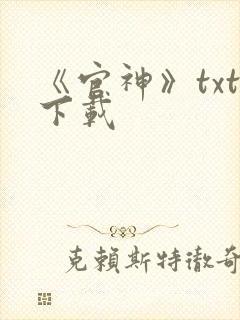 《官神》txt
下載
克賴斯特徹奇